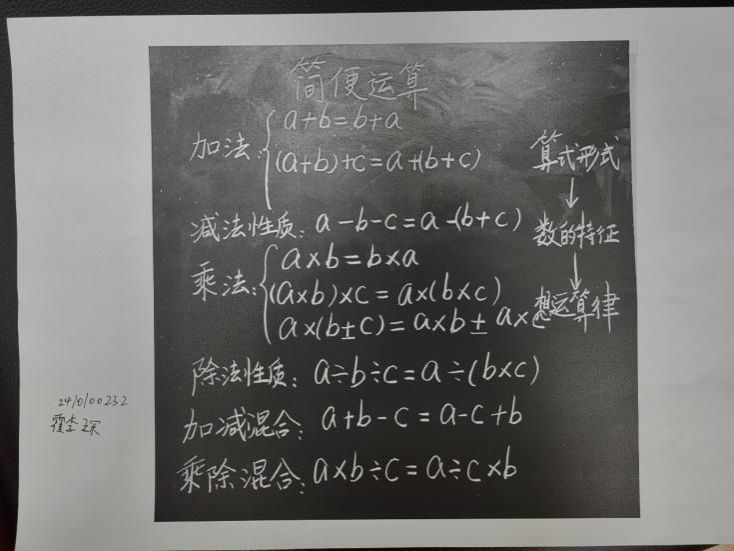 简便运算
加法:
a+b=b+a
(a+b)+c=a+(b+c)
减法性质: a-b-c=a-(b+c)
乘法:
a×b=b×a
(a×b)×c=a×(b×c)
a×(b±c)=a×b±a×c
除法性质: a÷b÷c=a÷(b×c)
加减混合: a+b-c=a-c+b
乘除混合: a×b÷c=a÷c×b
算式形式
↓
数的特征
↓
想运算律
霍李